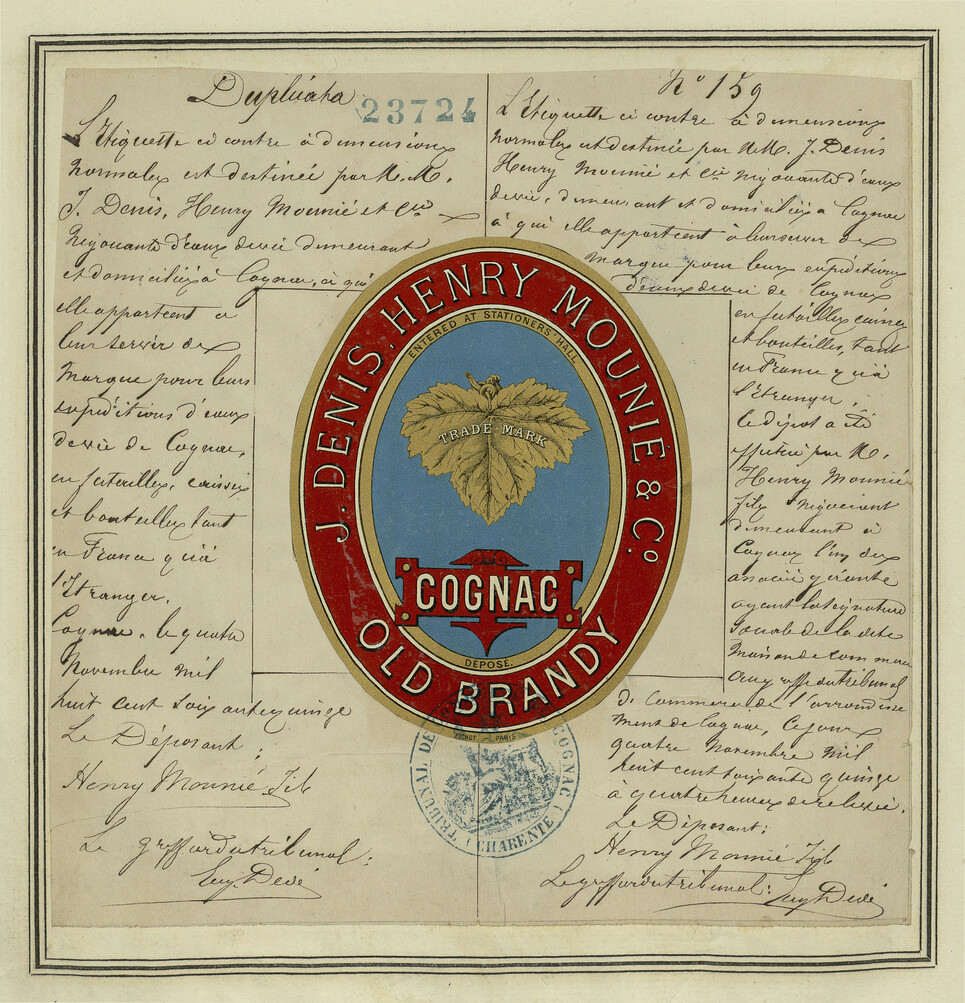 Duplicata
23724
L'Etiquette ci contre à dimensions
normales est destinée par M.M.
J. Denis, Henry Mounié et Cie
Négociants d'eaux de vie demeurant
et domiciliés à Cognac, à qui
elle appartient à
leur servir de
marque pour leurs
expéditions d'eaux
de vie de Cognac,
en futailles, caisses
et bouteilles tant
en France qu'à
l'Etranger.
Cognac, le quatre
Novembre mil
huit cent soixante quinze
Le Déposant :
Henry Mounié Fils
Le greffier du tribunal :
No 159
L'Etiquette ci contre à dimensions
normales est destinée par M.M. J. Denis
Henry Mounié et Cie Négociants d'eaux
de vie, demeurant et domiciliés à Cognac
à qui elle appartient à leur servir de
marque pour leurs expéditions
d'eaux de vie de Cognac
en futailles caisses
et bouteilles, tant
en France qu'à
l'Etranger.
Le dépôt a été
effectué par M.
Henry Mounié
fils négociant
demeurant à
Cognac l'un des
associés gérants
ayant la signature
sociale de la dite
Maison de commerce
au greffe du tribunal
de Commerce de l'arrondisse
ment de Cognac, ce jour
quatre Novembre mil
huit cent soixante quinze
à quatre heures de relevée.
Le Déposant :
Henry Mounié Fils
Le greffier du tribunal :
J. DENIS HENRY MOUNIÉ & Co.
ENTERED AT STATIONERS' HALL
TRADE-MARK
COGNAC
DÉPOSÉ.
OLD BRANDY
PARIS
TRIBUNAL DE COGNAC
(CHARENTE)